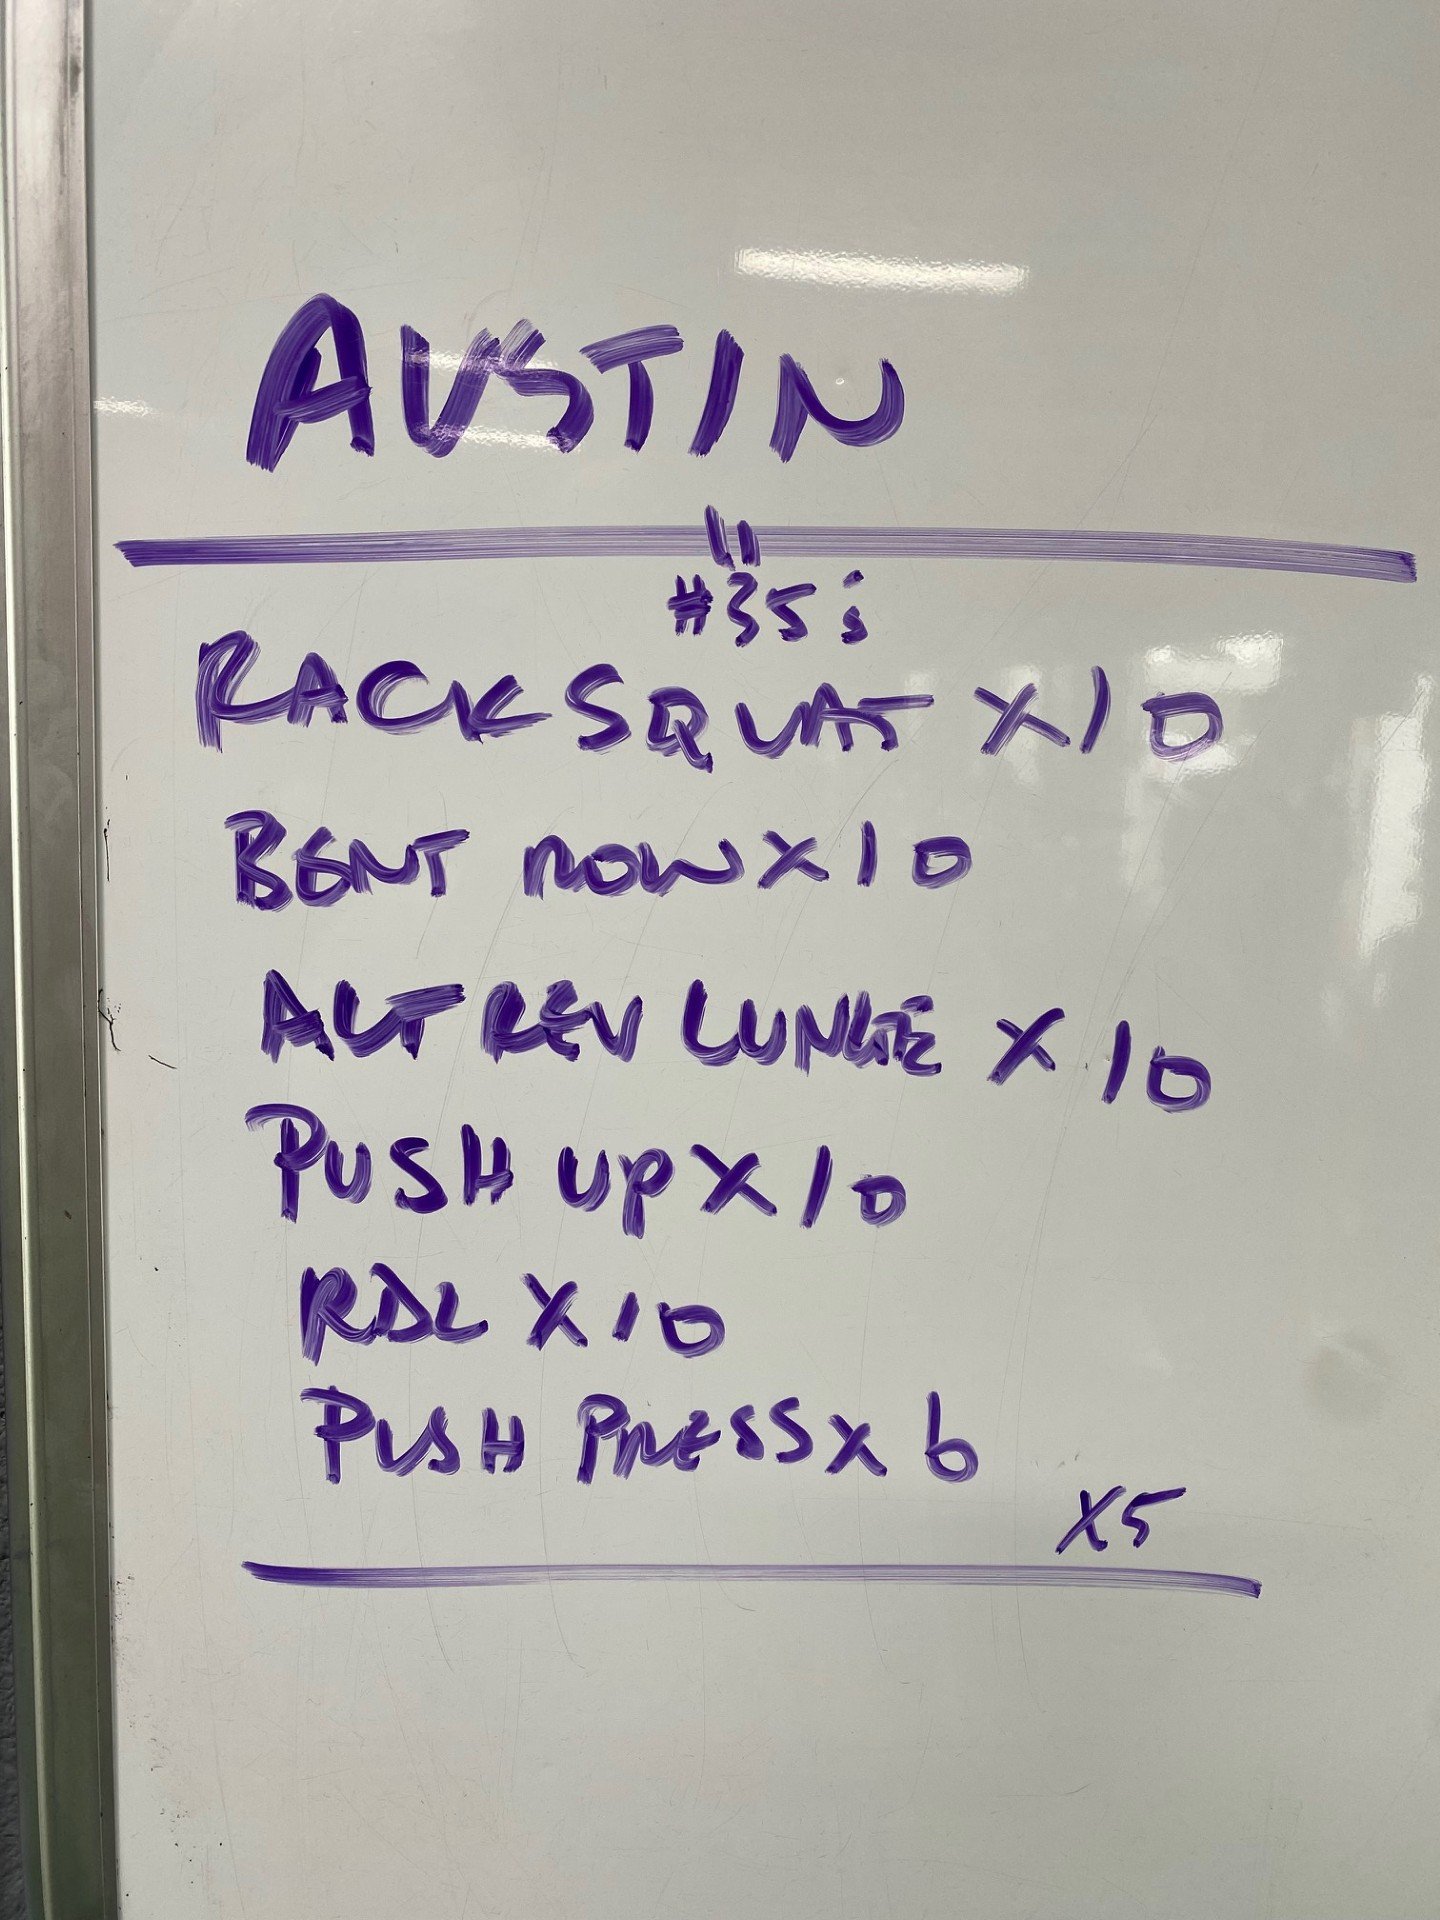 AUSTIN
"
#35
RACK SQUAT X10
BENT ROW X10
ALT REV LUNGE X 10
PUSH UP X 10
RDL X 10
PUSH PRESS X 6
X5